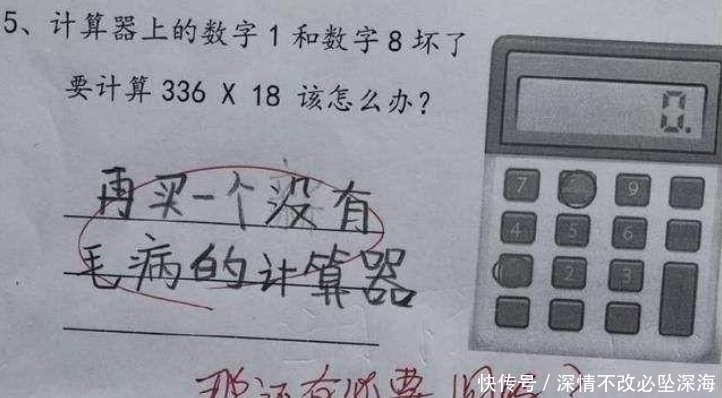 5、计算器上的数字1和数字8坏了
要计算336 X 18 该怎么办?
再买一个没有
毛病的计算器
0.
7 9
4 5 6
2 3
快传号/深情不改必坠深海